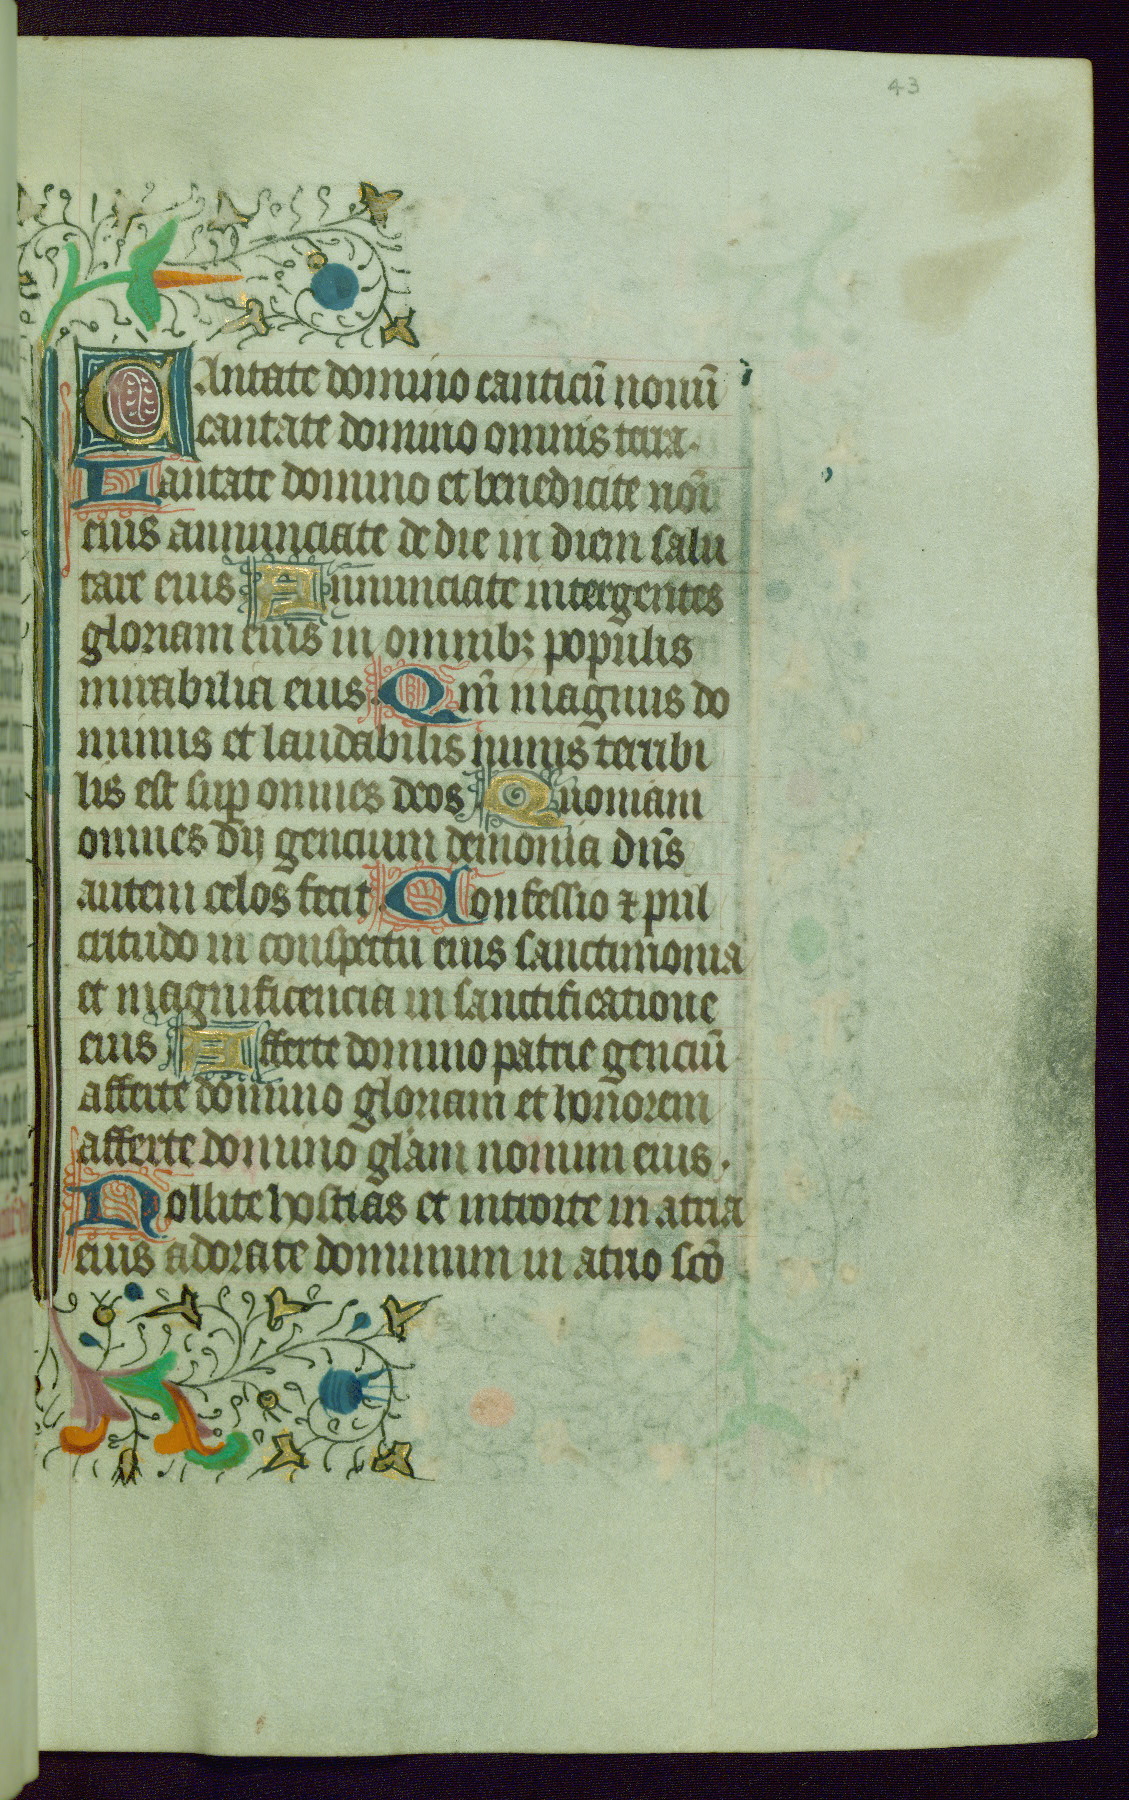 43
Cantate domino canticū nouū
cantate domino omnis terra.
Lantate domino et benedicite nōi
eius annunciate de die in diem salu
tare eius Annunciate inter gentes
gloriam eius in omnibꝫ populis
mirabilia eius. Qm̄ magnus do
minus et laudabilis nimis terribi
lis est suꝑ omnes deos Quoniam
omnes dij gencium demonia dn̄s
autem celos fecit. Confessio ⁊ pul
critudo in conspectu eius sanctimonia
et magnificencia in sanctificatione
eius Afferte domino patrie genciū
afferte domino gloriam et honorem
afferte domino glām nomini eius.
Nollite hostias et introite in atria
eius adorate dominum in atrio scō